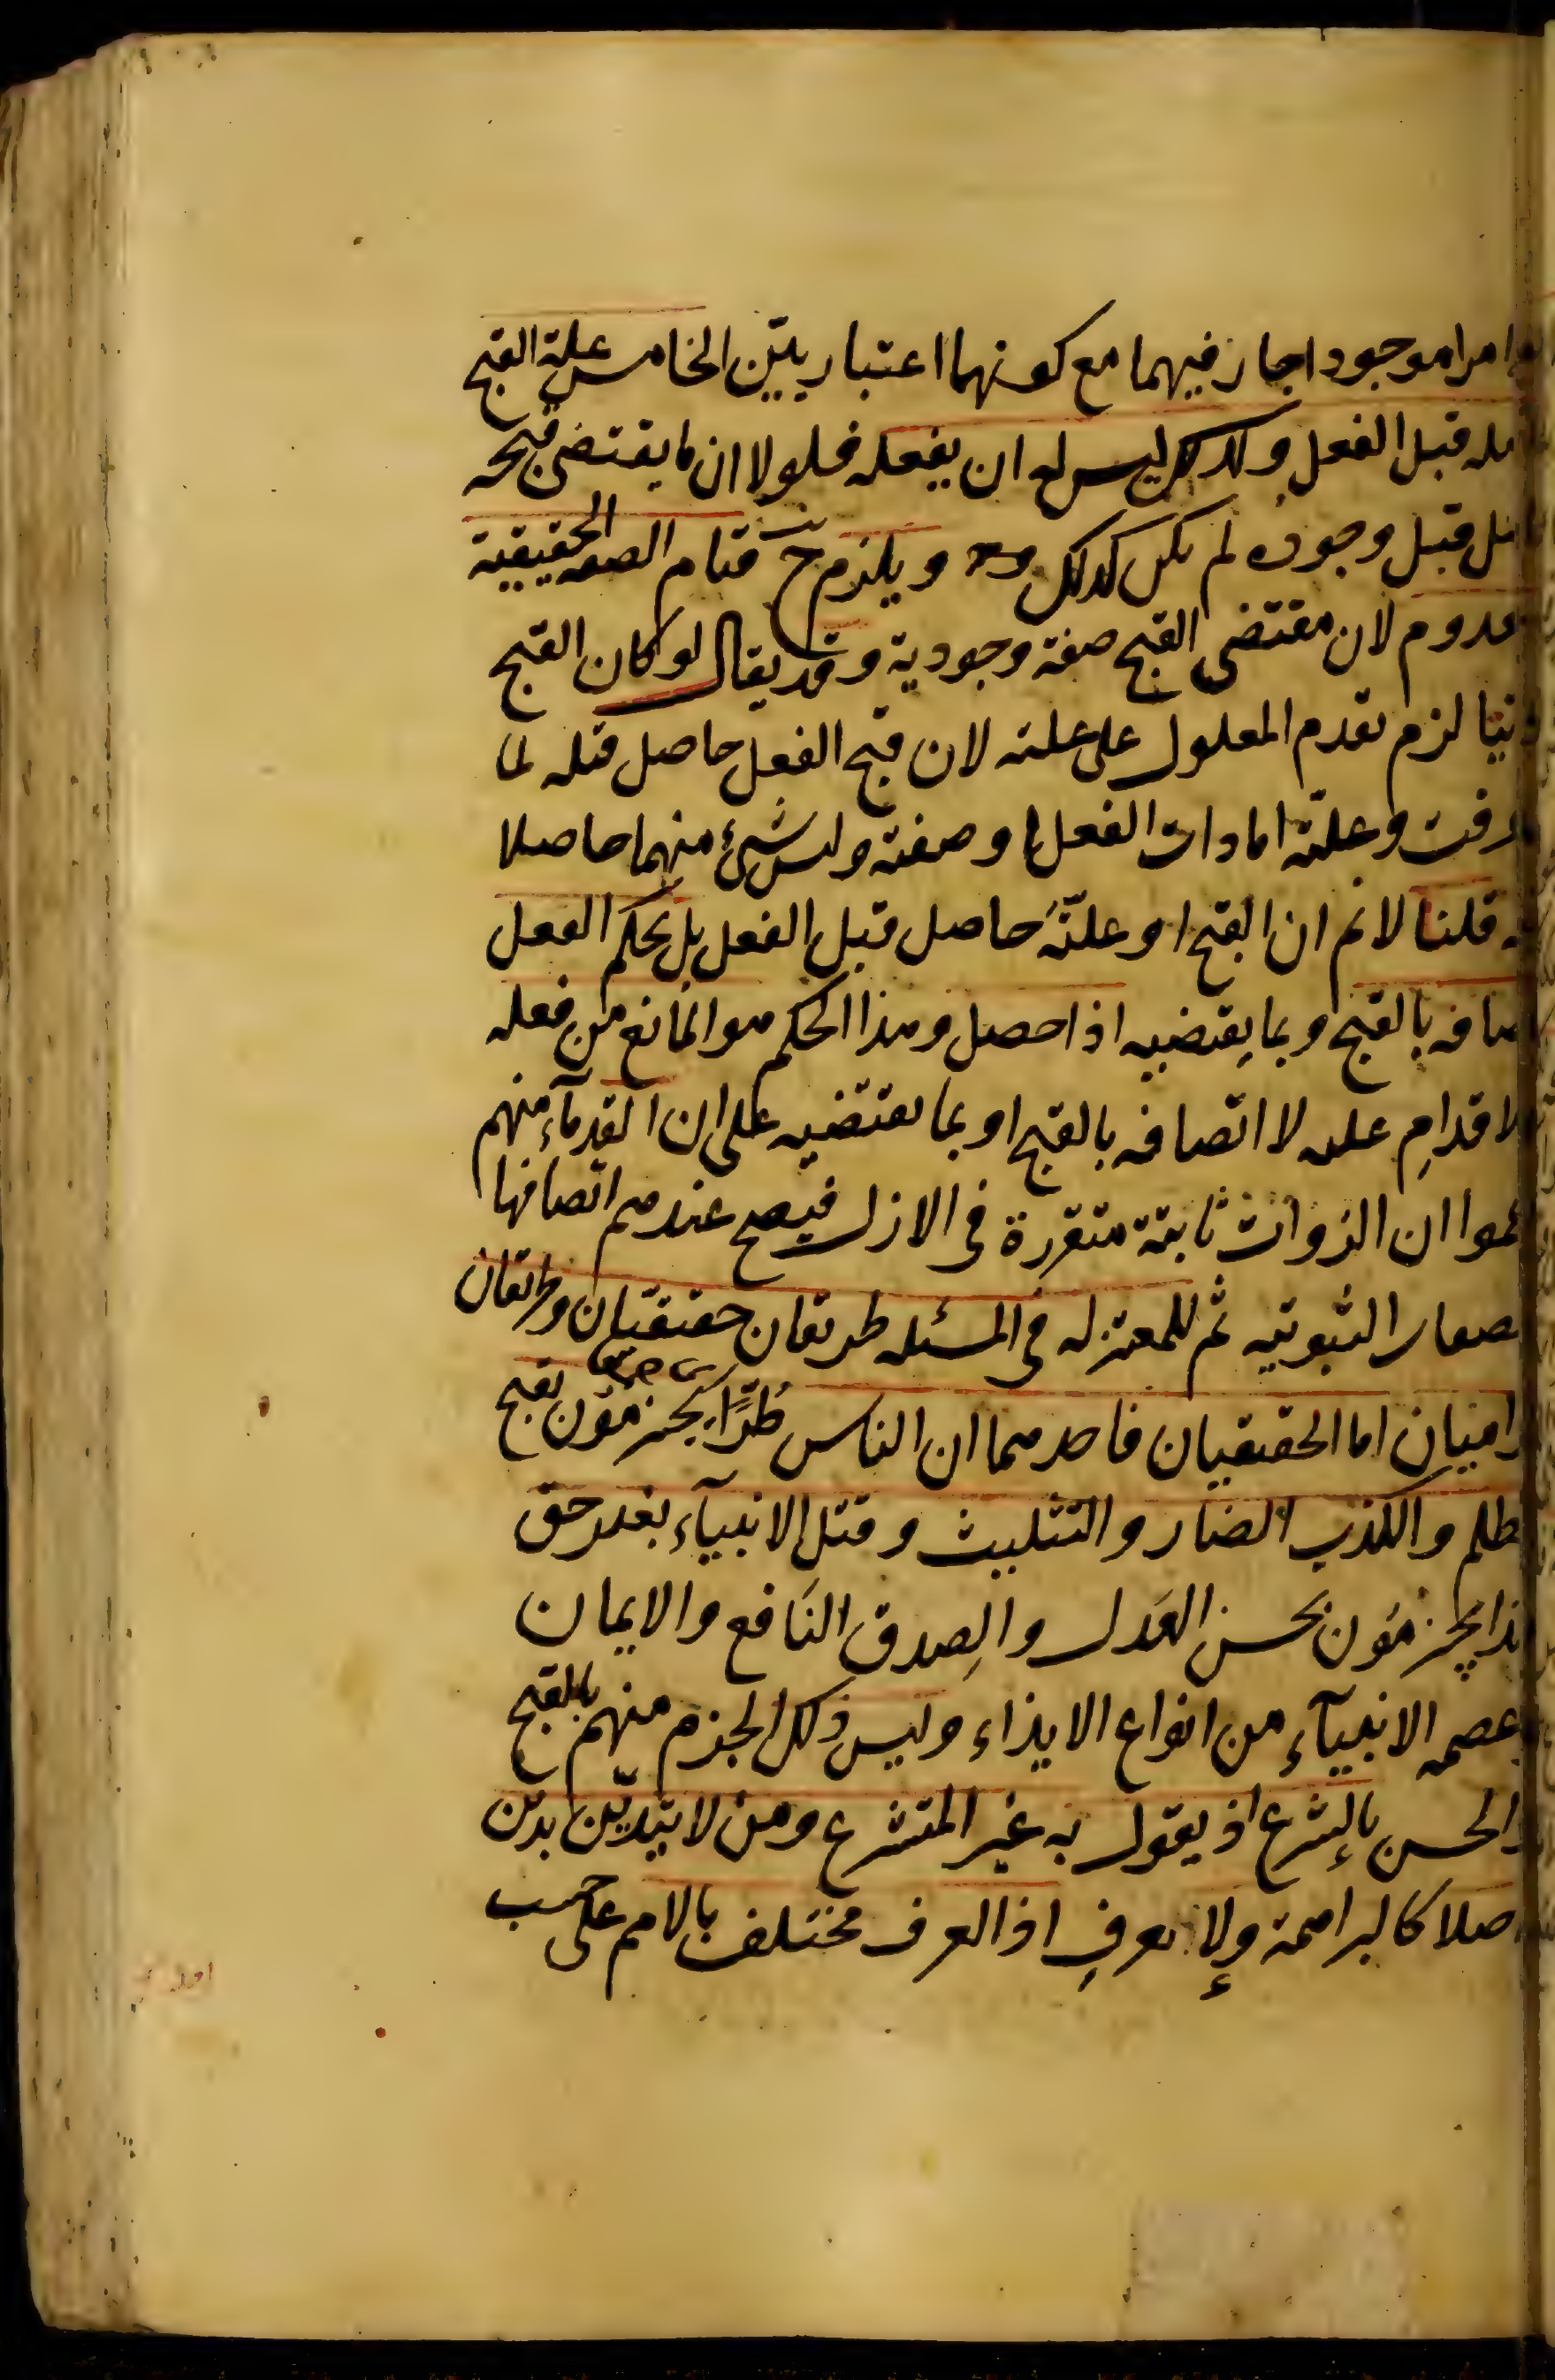 امرا موجودا جاز فيهما مع كونهما اعتباريين الخامس علة القبح
قبل الفعل ولذلك ليس له ان يفعله فلولا ان ما يقتضى قبحه
قبل وجوده لم يكن كذلك ويلزم ح قيام الصفة الحقيقية
لان مقتضى القبح صفة وجودية وقد يقال لو كان القبح
لزم تقدم المعلول على علته لان قبح الفعل حاصل قبله لما
وعلته اما ذات الفعل او صفته وليس شئ منهما حاصلا
قلنا لانم ان القبح او علته حاصل قبل الفعل بل يحكم الفعل
بالقبح وبما يقتضيه اذا حصل وهذا الحكم هو المانع من فعله
الاقدام عليه لا اتصافه بالقبح او بما يقتضيه على ان القدماء منهم
ان الذوات ثابتة متقررة فى الازل فيصح عندهم اتصافها
الثبوتيه ثم للمعتزله فى المسئله طريقان حقيقيان وطريقان
اما الحقيقيان فاحدهما ان الناس طرا يجزمون بقبح
والكذب الضار والتثليث وقتل الانبيآء بغير حق
يجزمون بحسن العدل والصدق النافع والايمان
عصمه الانبيآء من انواع الايذاء وليس ذلك الجزم منهم بالقبح
والحسن بالشرع اذ يقول به غير المتشرع ومن لا يتدين بدين
كالبراهمة ولا بعرف اذ العرف مختلف بالامم على حسب